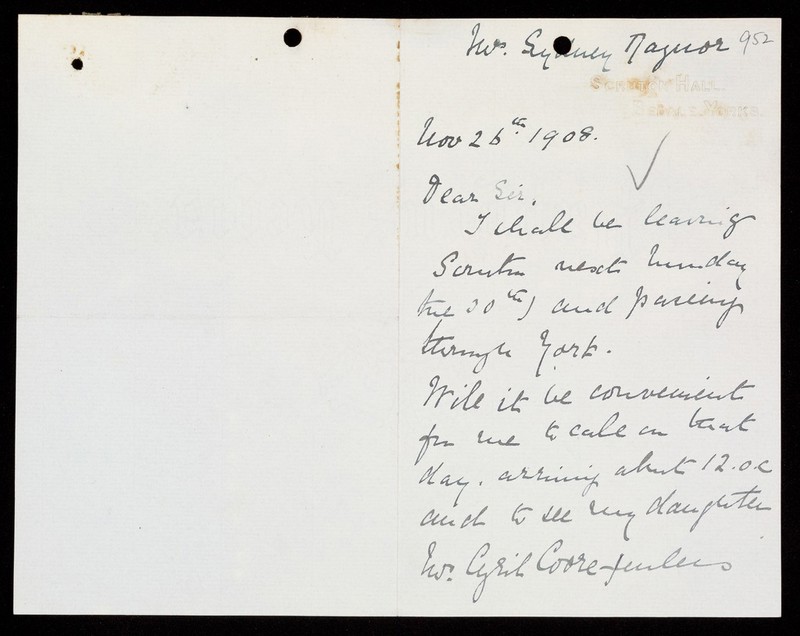 Mrs. Sydney Raynor 952
Scruton Hall.
Bedale. Yorks.
Nov 26th. 1908.
Dear Sir,
I shall be leaving
Scruton next Monday
the 30th) and passing
through York.
Will it be convenient
for me to call on that
day. arriving about 12.oc
and to see my daughter
Mrs. Cyril Coore